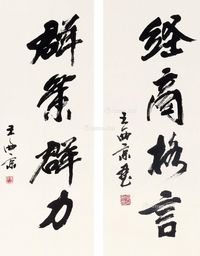 经商格言
王西京书
群策群力
王西京